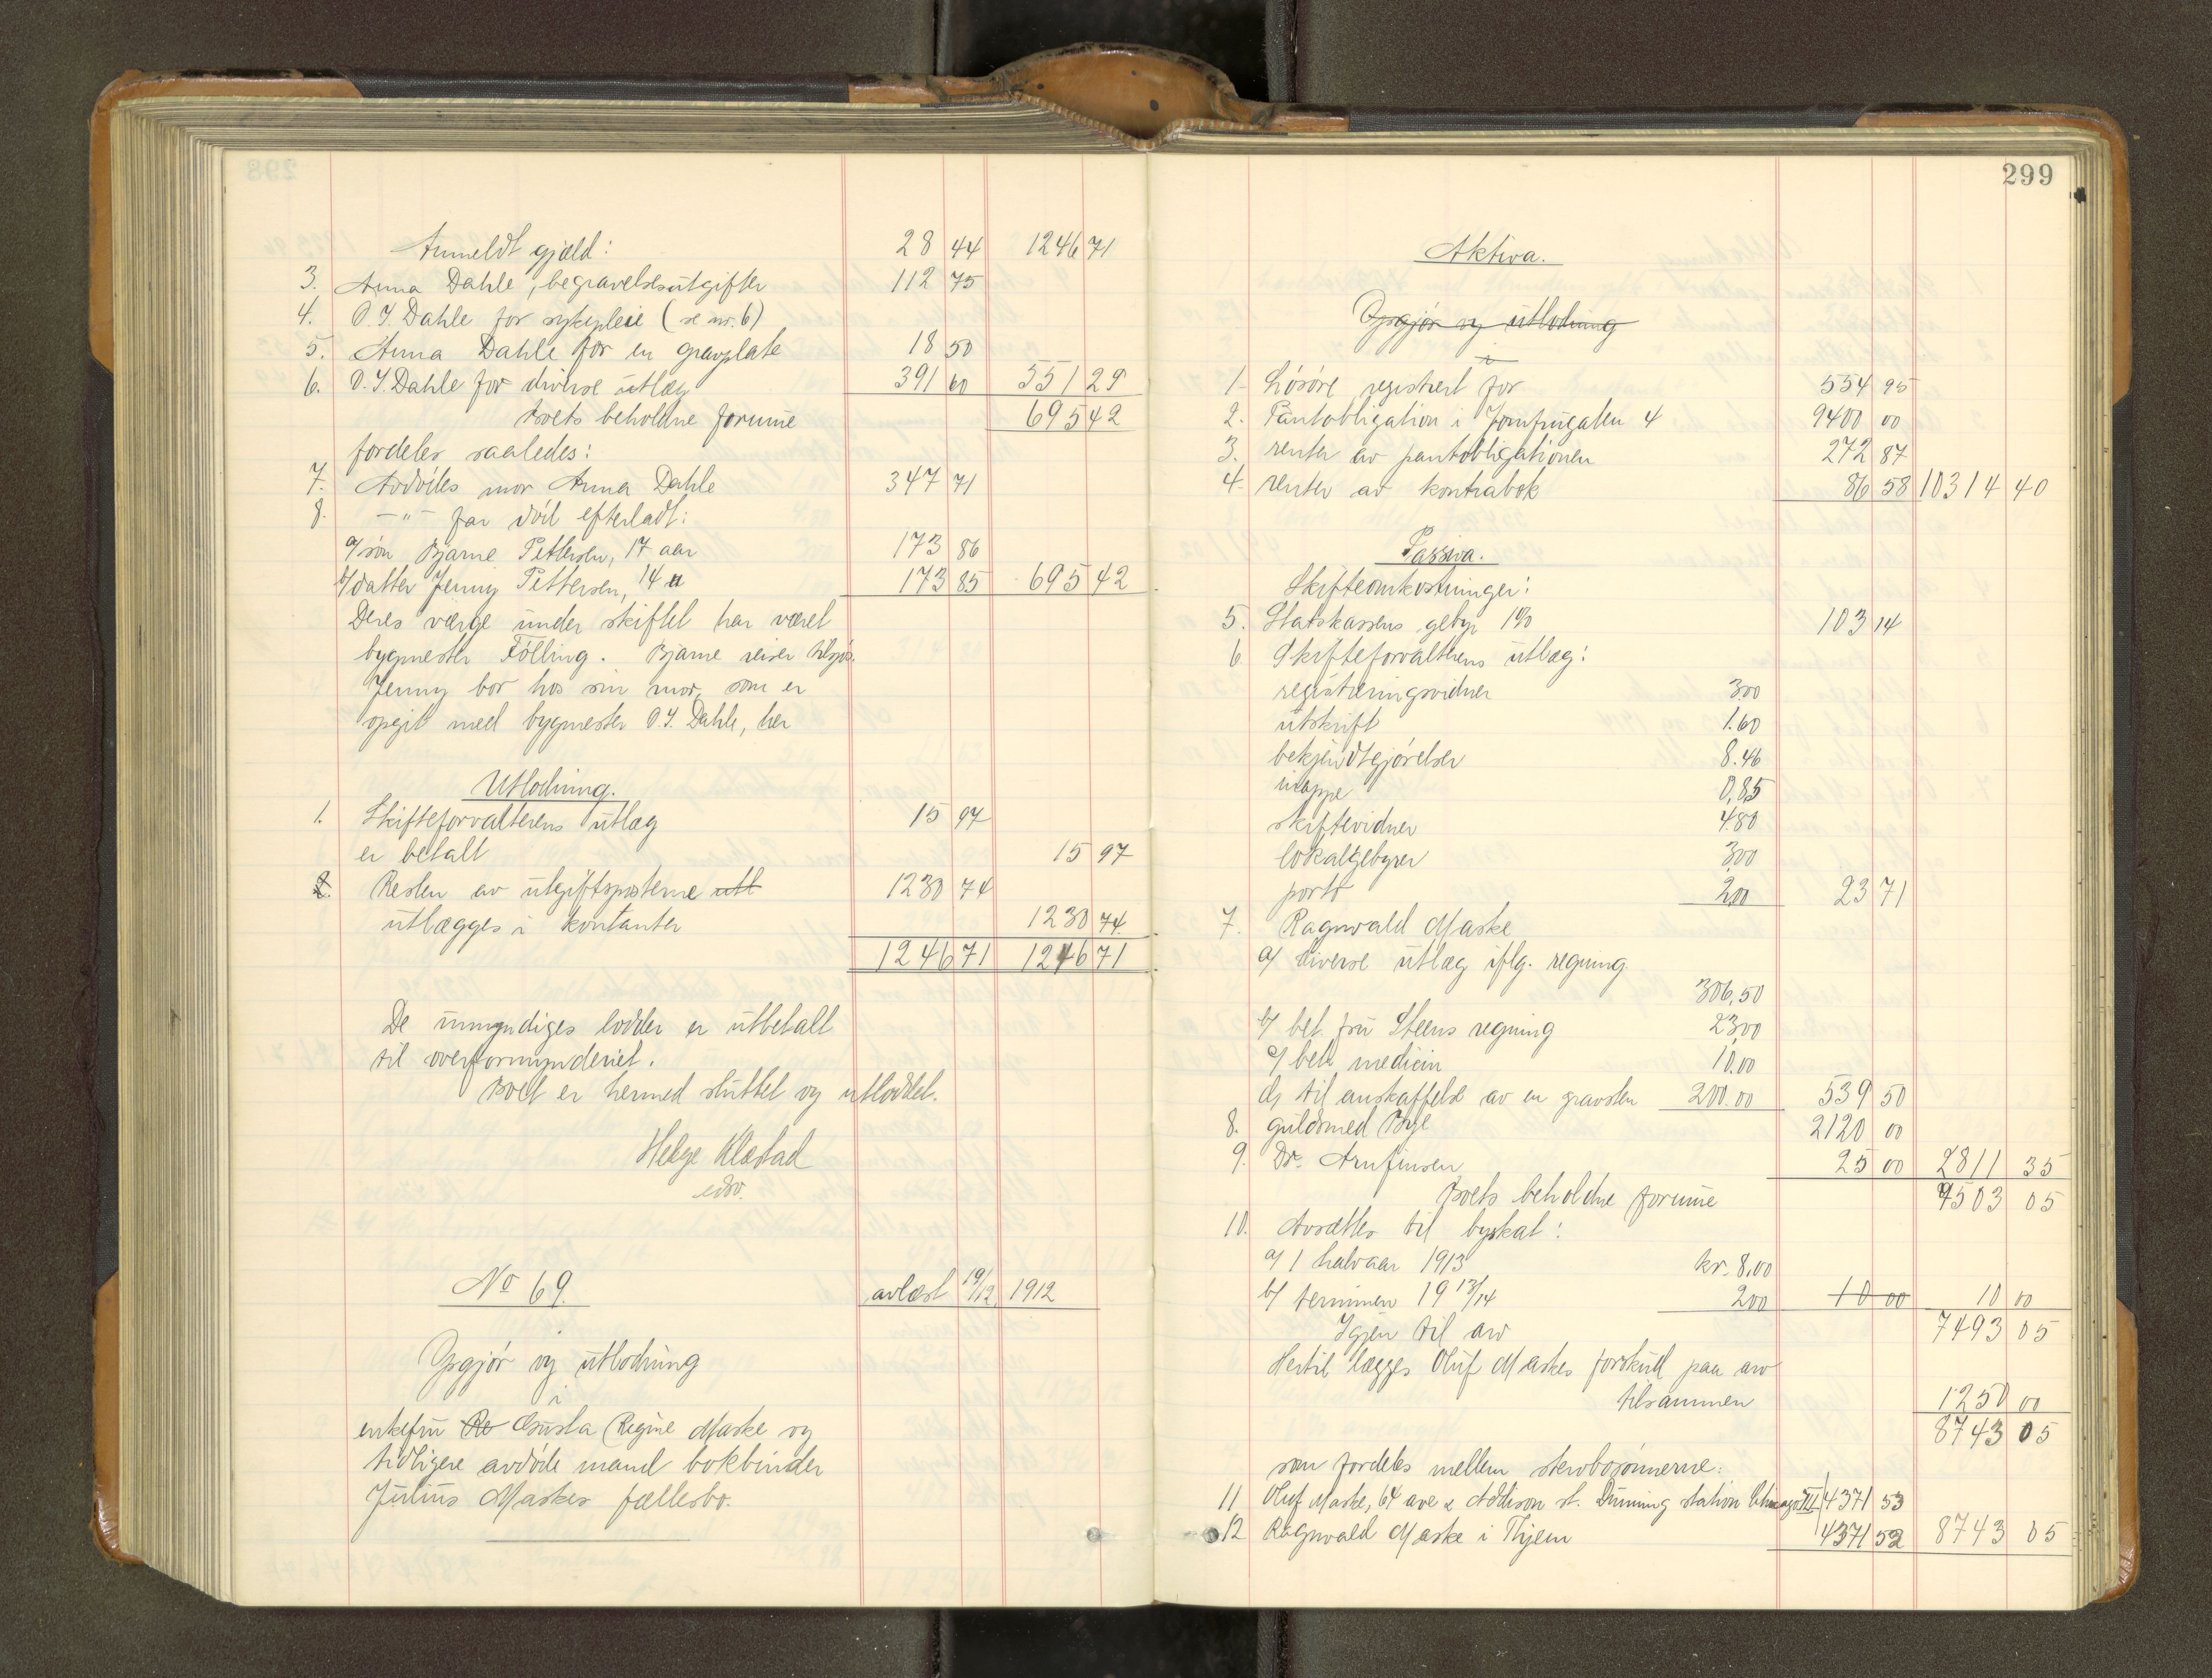 Anmeldt gjæld: 28 44 1246 71
3. Anna Dahle, begravelsesutgifter 112 75
4. O. I. Dahle for sykepleie (se nr. 6)
5. Anna Dahle for en gravplate 18 50
6. O. I. Dahle for diverse utlæg 391 60 551 29
Boets beholdne formue 695 42
fordeles saaledes:
7. Avdødes mor Anna Dahle 347 71
8. -"- far død efterladt:
a/ søn Bjarne Pettersen, 17 aar 173 86
b/ datter Jenny Pettersen, 14 " 173 85 695 42
Deres værge under skiftet har været
bygmester Fölling. Bjarne reiser tilsjøs.
Jenny bor hos sin mor, som er
opgit med bygmester O. I. Dahle, her
Utlodning.
1. Skifteforvalterens utlæg 15 97
er betalt 15 97
2. Resten av utgiftsposterne utl 1230 74
utlægges i kontanter 1230 74
1246 71 1246 71
De umyndiges lodder er utbetalt
til overformynderiet.
Boet er hermed sluttet og utloddet.
Helge Klæstad
edsv.
No 69. avlæst 19/12 1912
Opgjør og utlodning
i
enkefru Re Gusta Regine Maske og
tidligere avdøde mand bokbinder
Julius Maskes fællesbo.
299
Aktiva.
Opgjør og utlodning
i
1. Løsøre registrert for 554 95
2. Pantobligation i Jomfrugaten 4 9400 00
3. renter av pantobligationen 272 87
4. renter av kontrabok 86 58 10314 40
Passiva.
Skifteomkostninger:
5. Statskassens gebyr 1% 103 14
6 Skifteforvalterens utlæg:
registreringsvidner 3.00
utskrift 1.60
bekjendtgjørelser 8.46
mappe 0,85
skiftevidner 4.80
lokalgebyrer 3,00
porto 2,00 23 71
7. Ragnvald Maske
a/ diverse utlæg iflg. regning
306,50
b/ bet. fru Steens regning 23,00
c/ bet. medicin 10.00
d/ til anskaffelse av en gravsten 200.00 539 50
8. guldsmed Bye 2120 00
9. Dr. Arnfinsen 25 00 2811 35
Boets beholdne formue 7503 05
10. Avsættes til byskat:
a/ 1 halvaar 1913 kr. 8,00
b/ terminen 1913/14 2.00 10 00 10 00
Igjen til arv 7493 05
Hertil lægges Oluf Maskes forskud paa arv
1250 00
tilsammen 8743 05
som fordeles mellem stervbosønnerne:
11 Oluf Maske, 64 ave & Addison st. Dunning station Chicago Ill 4371 53
12 Ragnvald Maske i Thjem 4371 52 8743 05